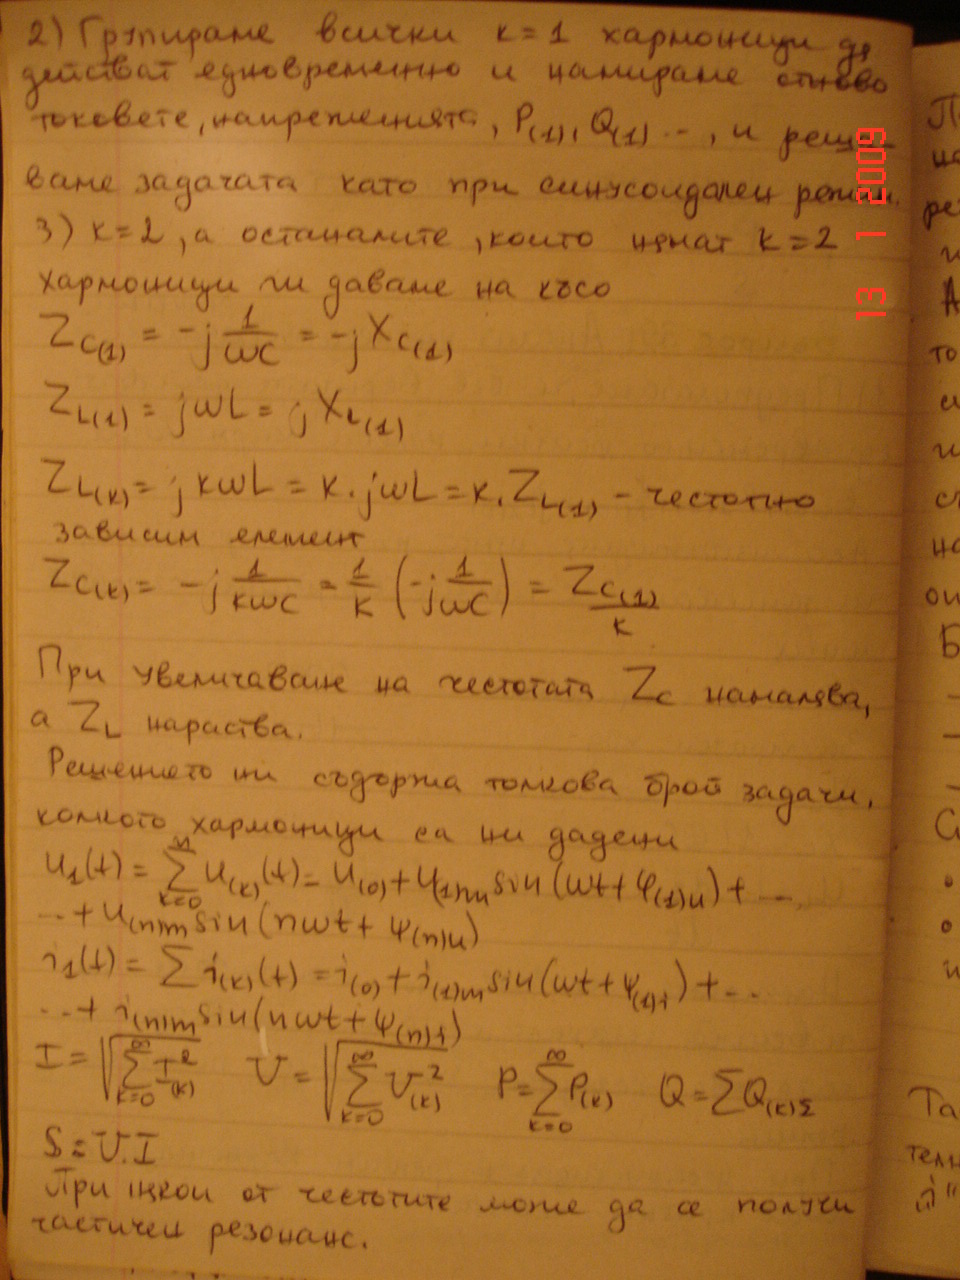 2) Групираме всички k=1 хармоници да
действат едновременно и намираме отново
токовете, напреженията, P(1), Q(1) .., и реша-
ваме задачата като при синусоидален режим.
3) k=2, а останалите, които нямат k=2
хармоници ги даваме на късо
Z_C(1) = -j 1/ωC = -j X_C(1)
Z_L(1) = jωL = j X_L(1)
Z_L(k) = j kωL = k . jωL = k . Z_L(1) - честотно
зависим елемент
Z_C(k) = -j 1/kωC = 1/k (-j 1/ωC) = Z_C(1)/k
При увеличаване на честотата Z_C намалява,
а Z_L нараства.
Решението ни съдържа толкова брой задачи,
колкото хармоници са ни дадени
u_1(t) = ∑_{k=0}^{n} u_(k)(t) = U_(0) + U_(1)m sin(ωt + ψ_(1)u) + ...
..+ U_(n)m sin(nωt + ψ_(n)u)
i_1(t) = ∑ i_(k)(t) = i_(0) + i_(1)m sin(ωt + ψ_(1)i) + ..
..+ i_(n)m sin(nωt + ψ_(n)i)
I = √(∑_{k=0}^{∞} I_(k)^2) U = √(∑_{k=0}^{∞} U_(k)^2) P = ∑_{k=0}^{∞} P_(k) Q = ∑ Q_(k)Σ
S = U.I
При някои от честотите може да се получи
частичен резонанс.
13 1 2009
то
на
Б
Та